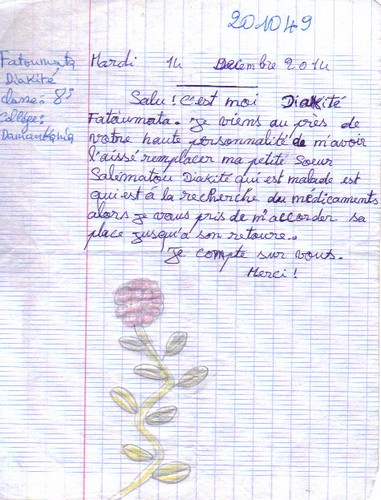 201049
Fatoumata
Diakité
classe: 8è
Collège:
Damankania
Mardi 14 Decembre 2014
Salu! C'est moi Diakité
Fatoumata. Je viens au près de
votre haute personnalité de m'avoir
l'aissé remplacer ma petite Soeur
Salématou Diakité qui est malade est
qui est à la recherche du médicaments
alors je vous pris de m'accorder sa
place jusqu'à son retoure.
Je compte sur vous.
Merci!